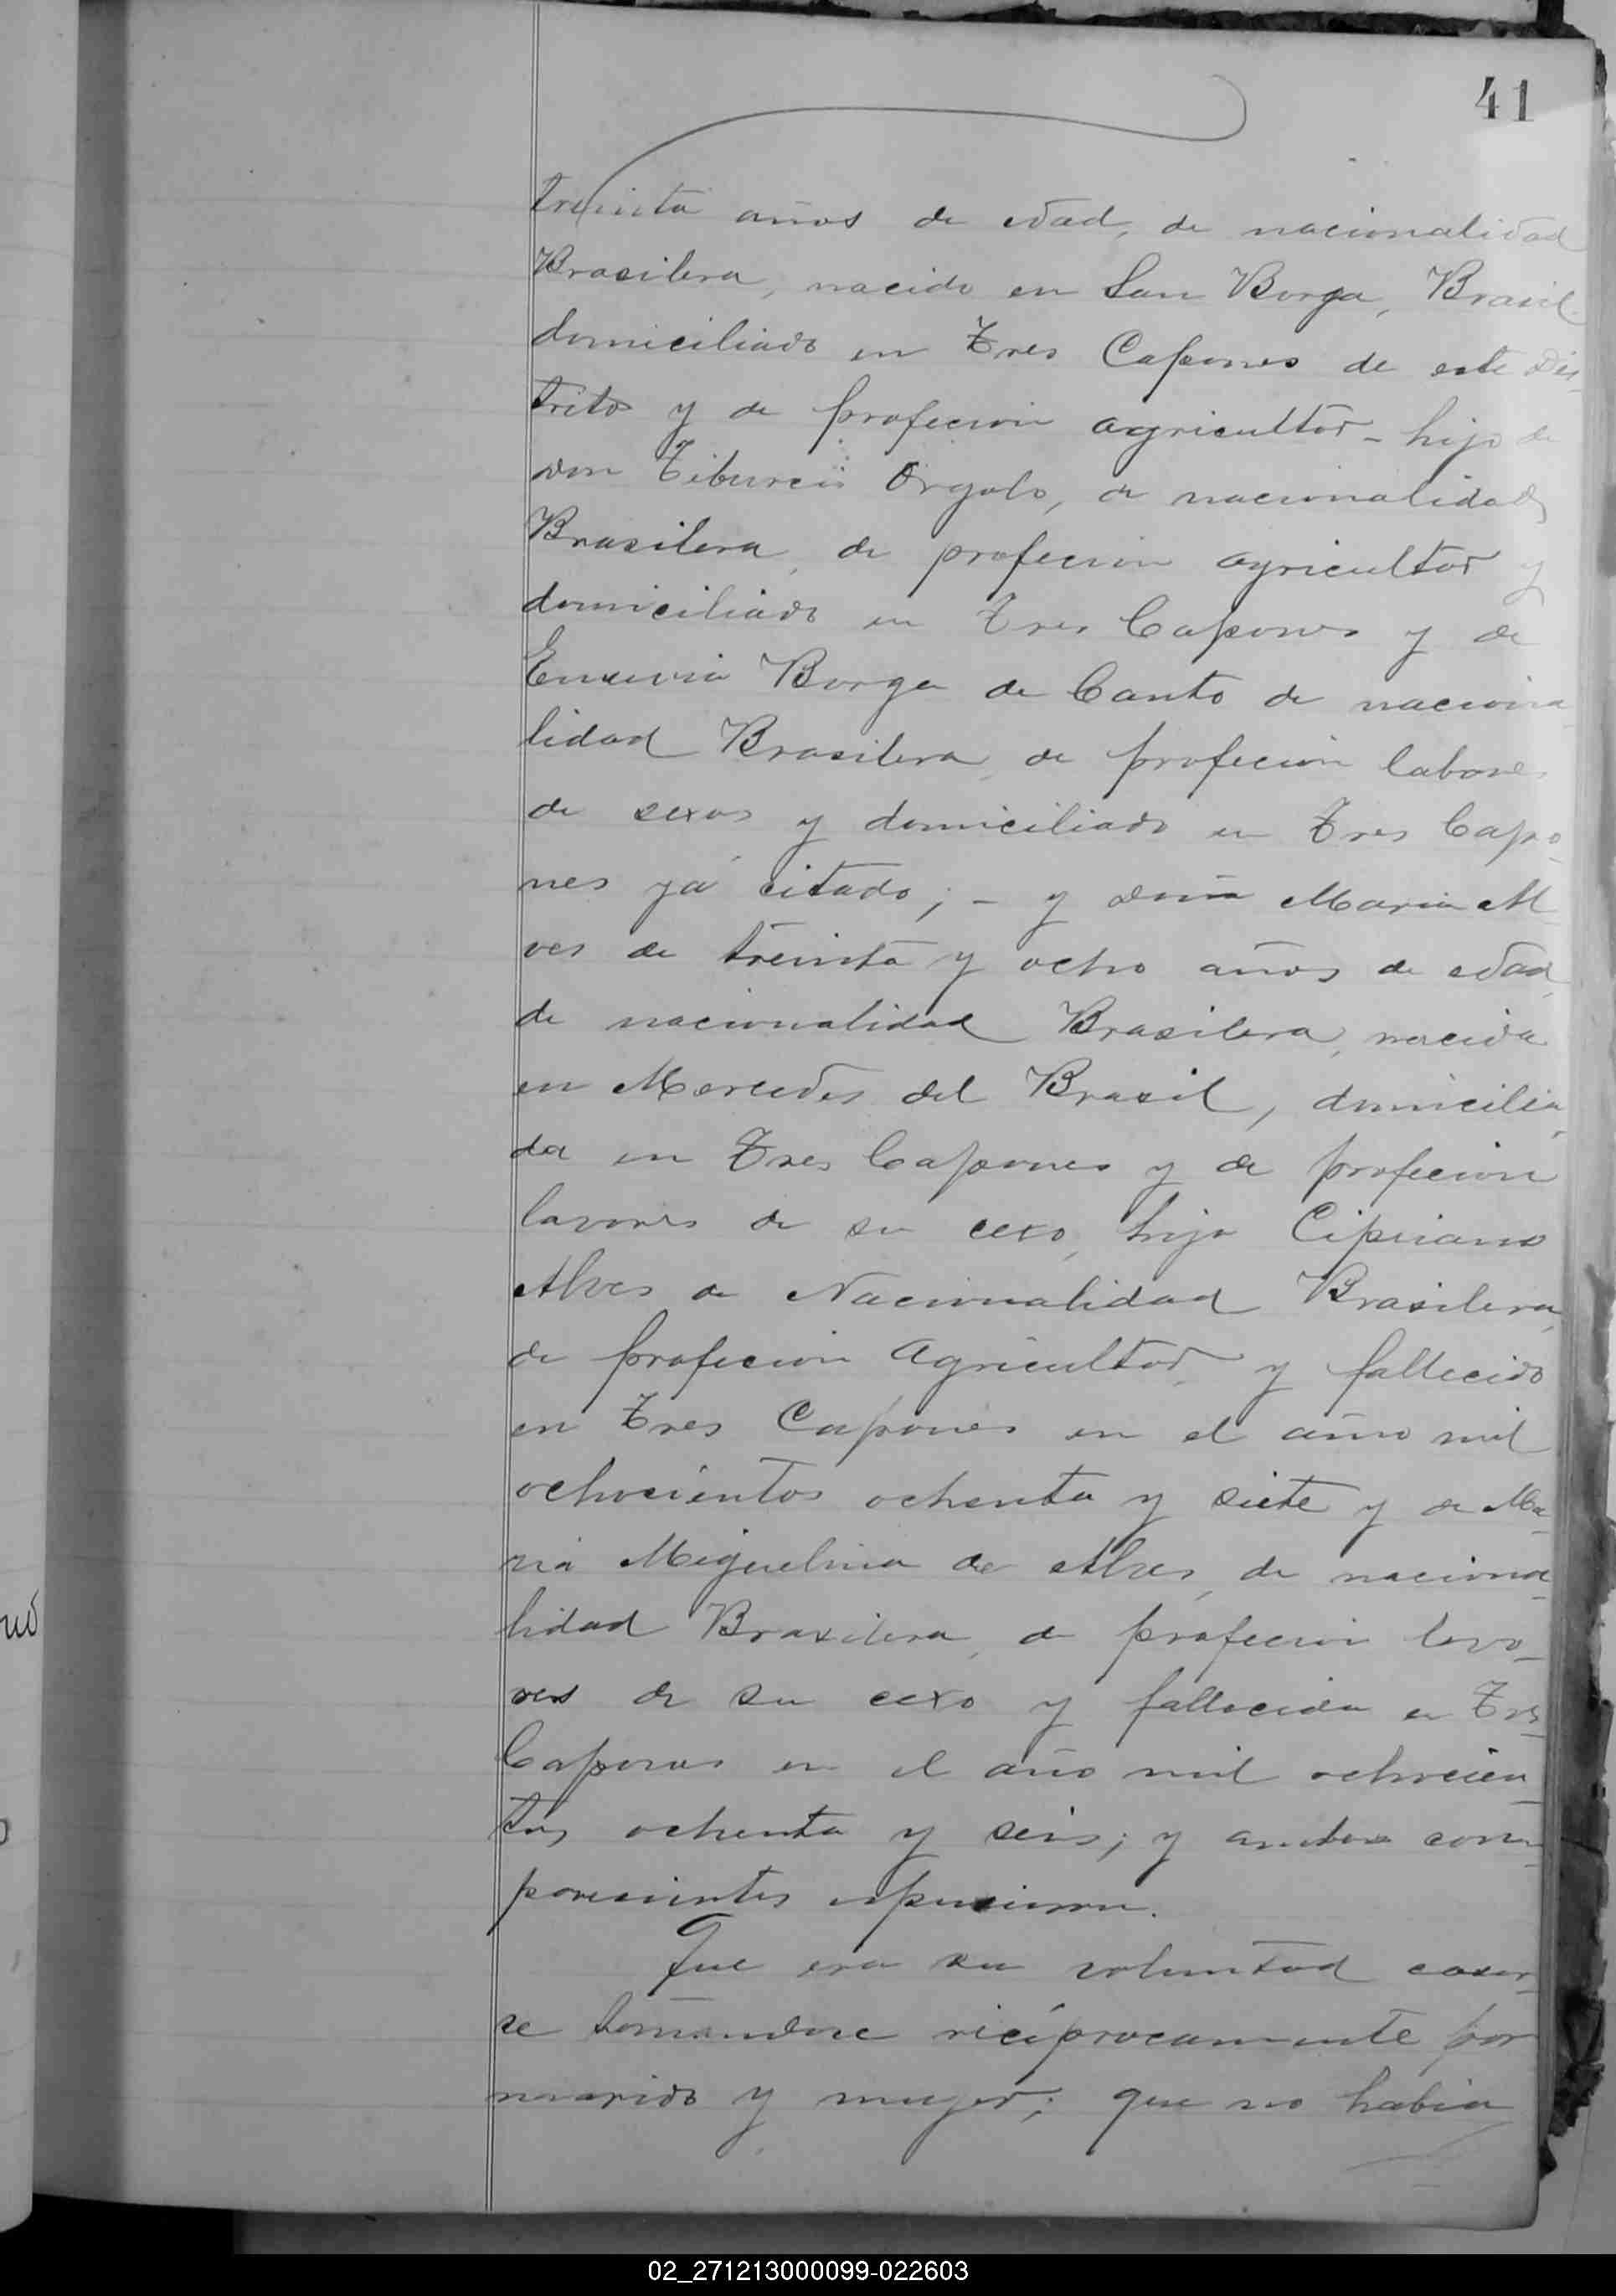 41
treinta años de edad, de nacionalidad
Brasilera, nacido en San Borga, Brasil
domiciliado en Tres Capones de este Dis
trito y de profecion agricultor - hijo de
don Tiburcio Orgolo, de nacionalidad
Brasilera, de profecion agricultor y
domiciliado en Tres Capones y de
Borga de Canto de naciona
lidad Brasilera, de profecion labores
de sexos y domiciliado en Tres Capo
nes ya citado; - y doña Maria Al
ves de treinta y ocho años de edad,
de nacionalidad Brasilera, nacida
en Mercedes del Brasil, domicilia
da en Tres Capones y de profecion
lavores de su cexo, hija Cipriano
Alves de Nacionalidad Brasilera,
de profecion Agricultor, y fallecido
en Tres Capones en el año mil
ochocientos ochenta y siete y de Ma_
ria Miguelina de Alves, de naciona_
lidad Brasilera, de profecion lavo_
res de su cexo y fallecida en Tres
Capones en el año mil ochocien_
tos ochenta y seis; y ambos com_
parecientes espusieron.
Que era su voluntad casar_
se tomandose reciprocamente por
marido y mujer; que no habia
02_271213000099-022603